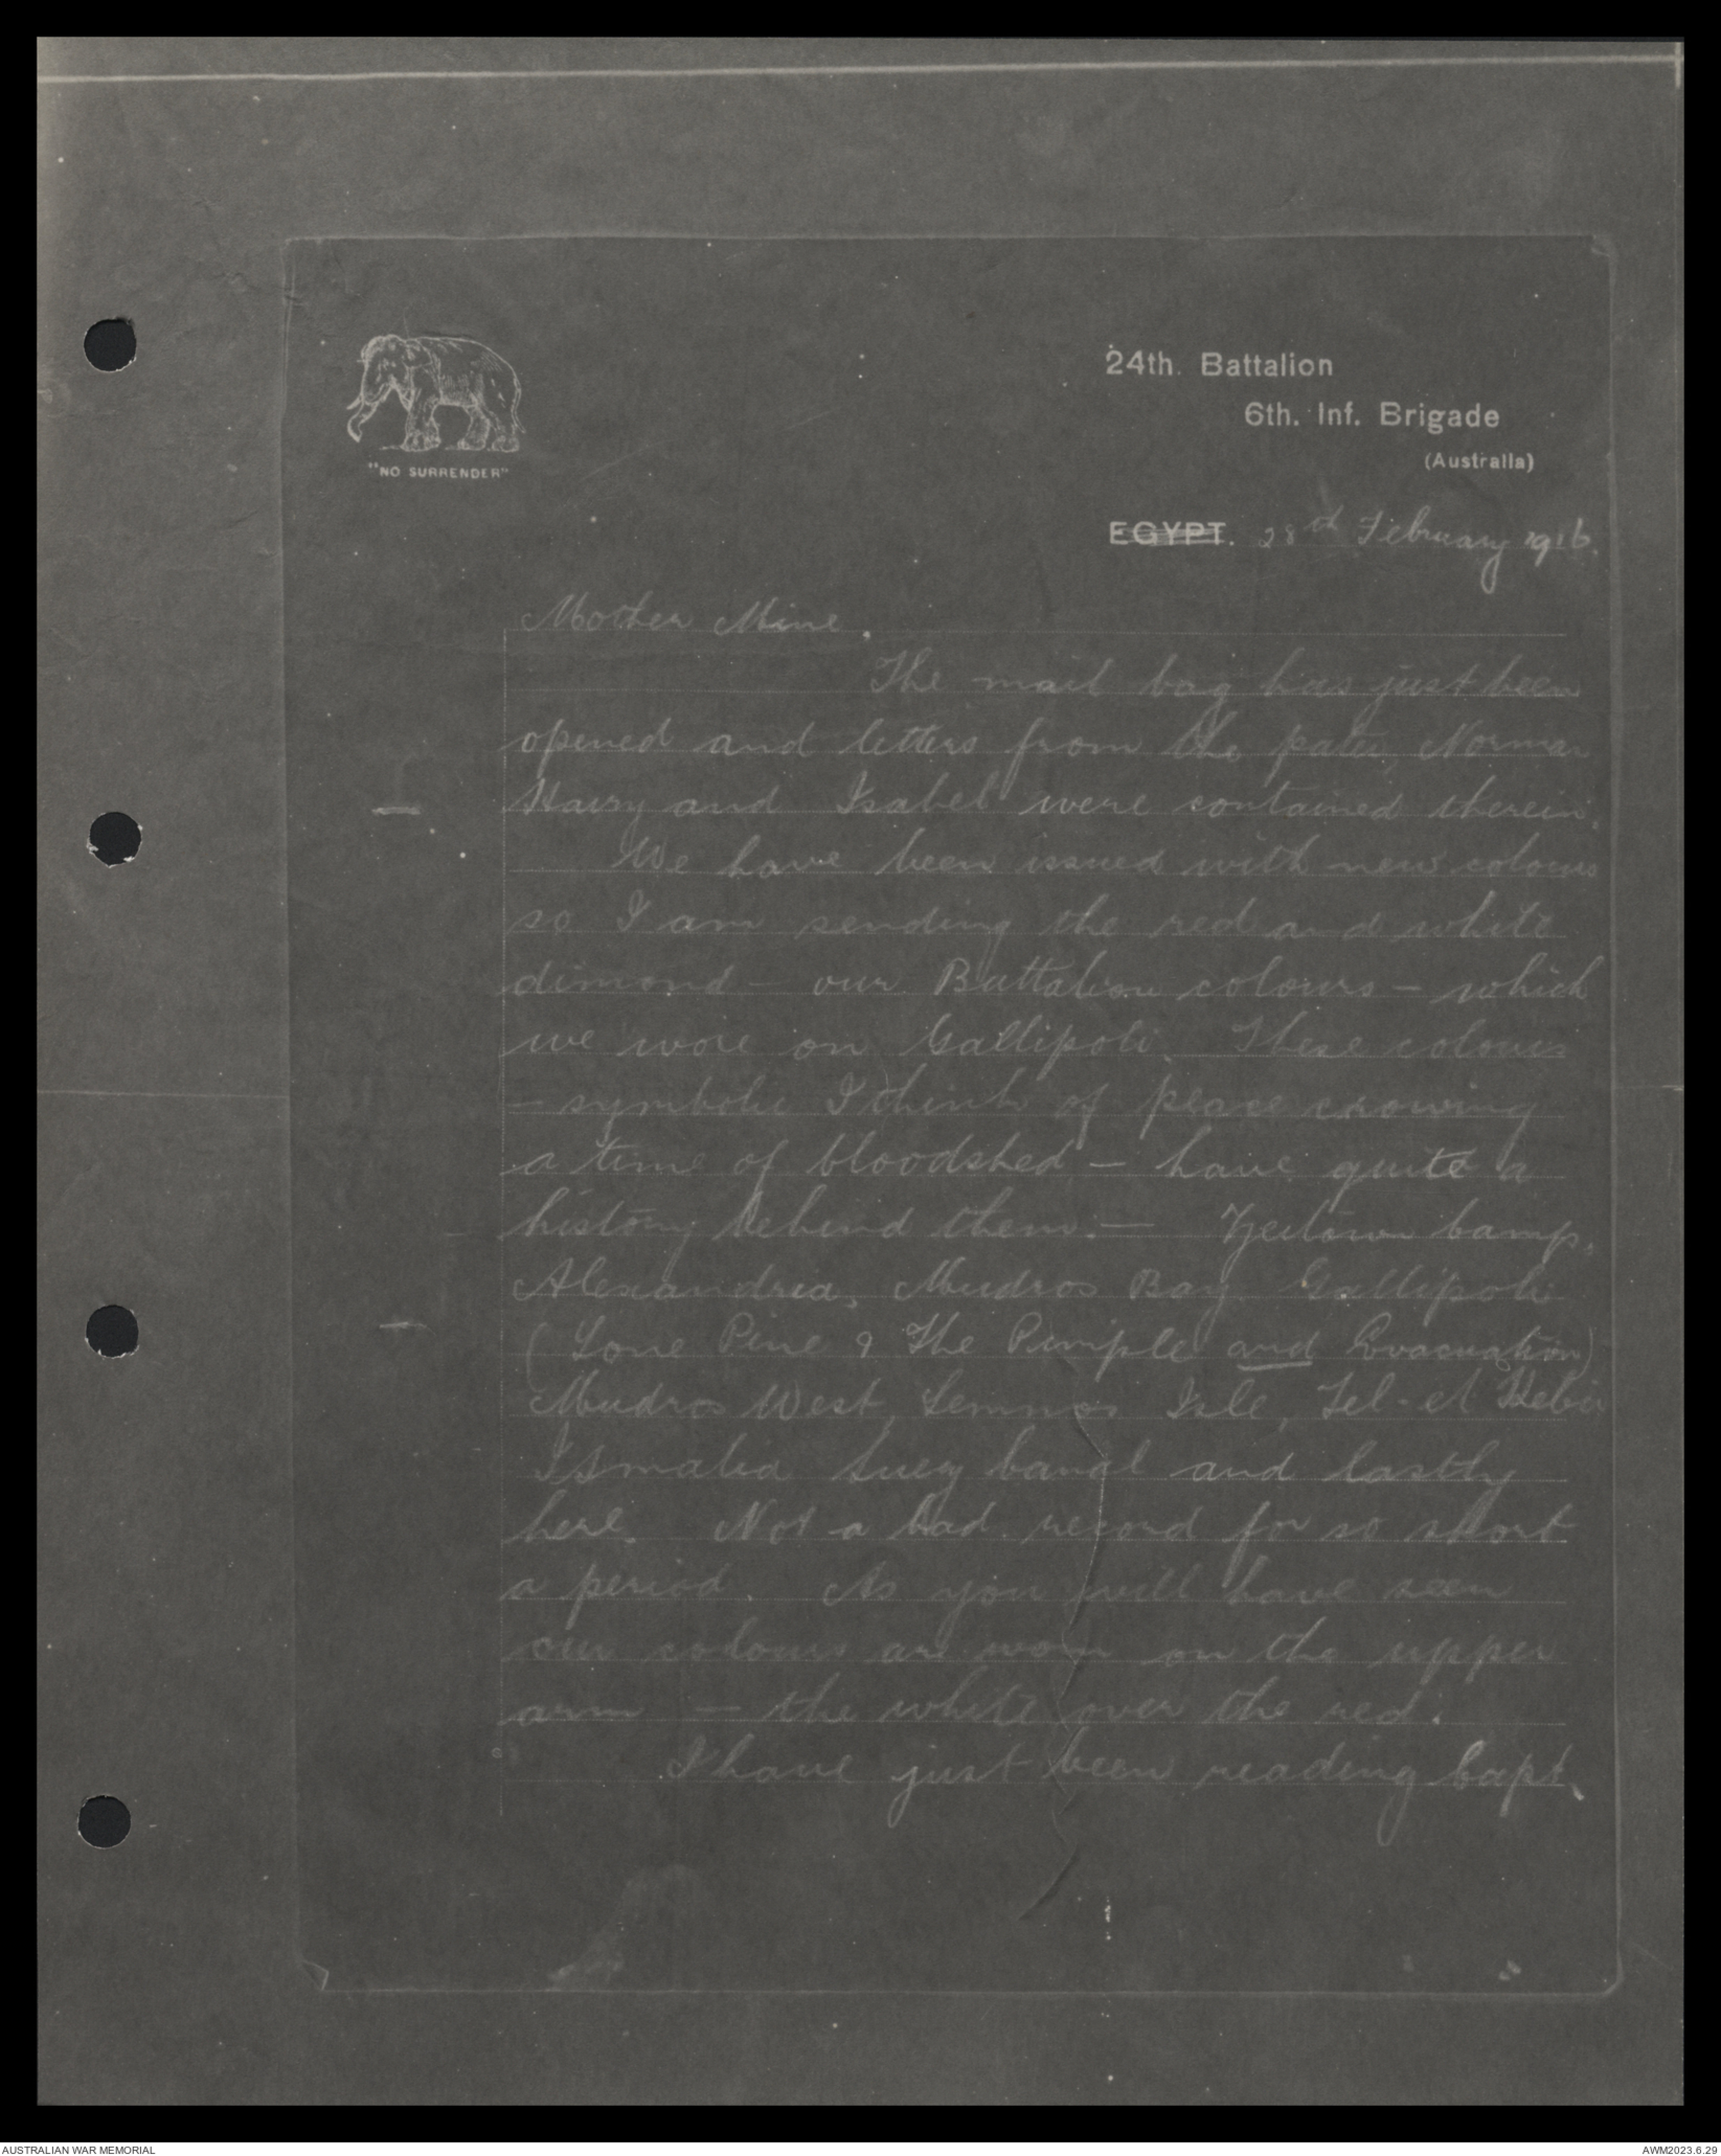 "NO SURRENDER"
24th. Battalion
6th. Inf. Brigade
(Australia)
EGYPT. 28th February 1916.
Mother Mine.
The mail bag has just been
opened and letters from the pater, Norman
Harry and Isabel were contained therein.
We have been issued with new colours
so I am sending the red and white
dimond – our Battalion colours – which
we wore on Gallipoli. These colours
– symbolic I think of peace crowing
a time of bloodshed – have quite a
history behind them. – Zeitoun Camp,
Alexandria, Mudros Bay Gallipoli
(Lone Pine & The Pimple and Evacuation)
Mudros West, Lemnos Isle, Tel-el Kebir
Ismalia Suez Canal and lastly
here. Not a bad record for so short
a period. As you will have seen
our colours are worn on the upper
arm – the white over the red.
I have just been reading Capt.
AUSTRALIAN WAR MEMORIAL
AWM2023.6.29